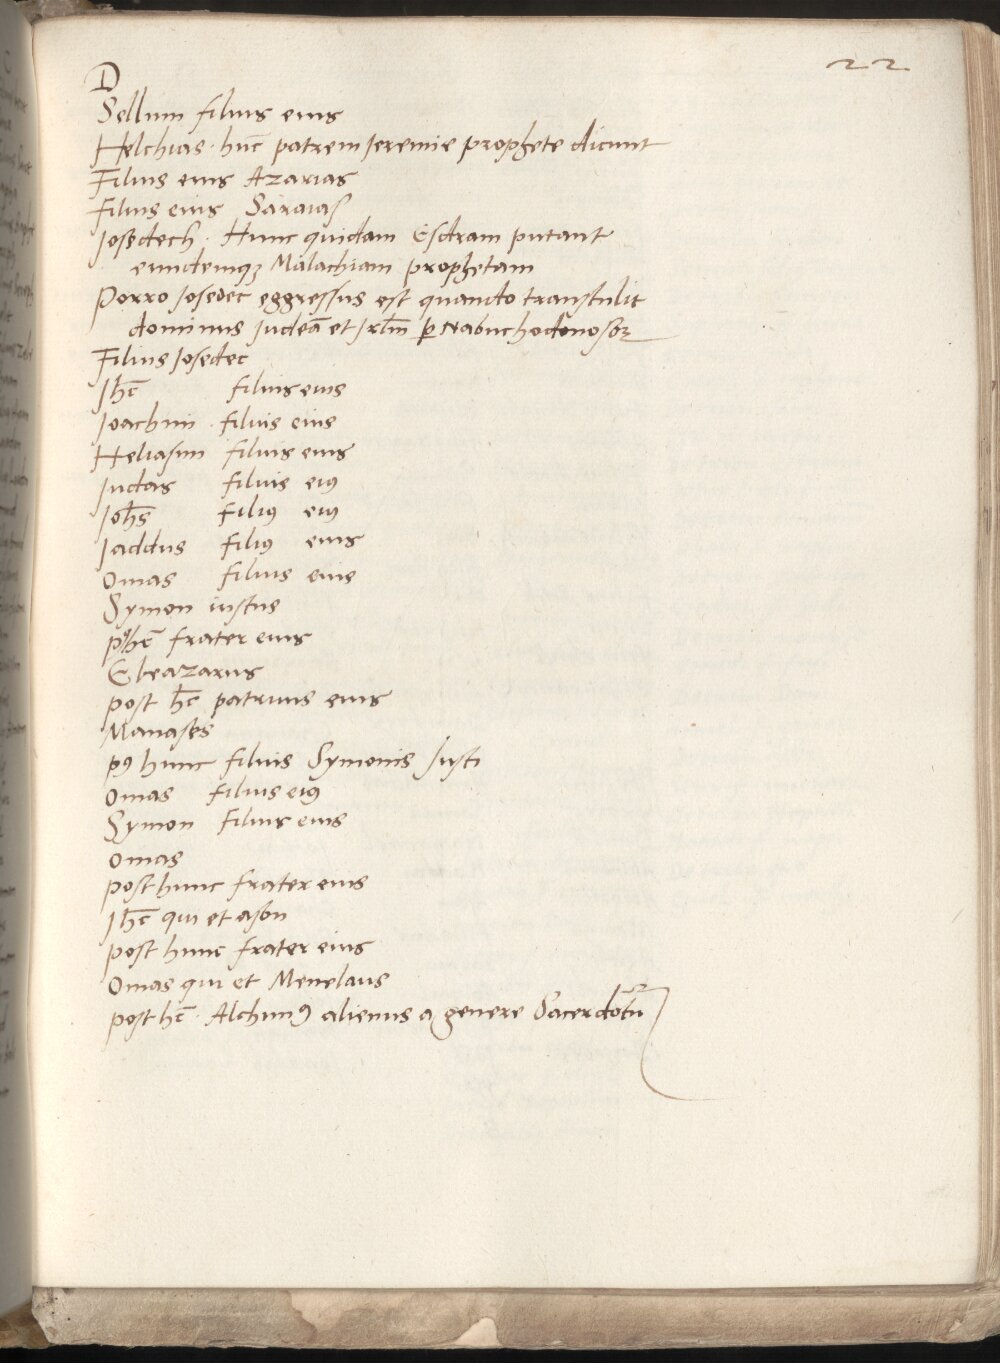 22
D
Sellum filius eius
Helchias · hūc patrem Jeremie prophete dicunt
Filius eius Azarias
Filius eius Saraias
Josedech · Hunc quidam Esdram putant
eundemqꝫ Malachiam prophetam
Porro Josedec eggressus est quando transtulit
dominus Judeā et Jrl̄m ꝑ Nabuchodonosoꝝ
Filius Josedec
Jhc̄ filius eius
Joachim · filius eius
Heliasim filius eius
Judas filius eiꝰ
Joh̄s filiꝰ eiꝰ
Jaddus filiꝰ eius
Onias filius eius
Symon iustus
pꝰ hc̄ frater eius
Eleazarus
post hc̄ patruus eius
Manases
pꝰ hunc filius Symonis Justi
Onias filius eiꝰ
Symon filius eius
Onias
post hunc frater eius
Jhc̄ qui et ason
post hunc frater eius
Onias qui et Menelaus
post hc̄ · Alchimꝰ alienus a genere Sacerdotū